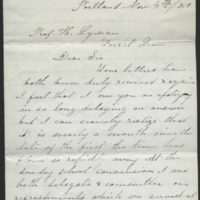 Portland Nov 5th/80
Prof H. Lyman
Forest Grove
Dear Sir
Your letters have
both been duly received & again
I feel that I owe you an apology
in so long delaying an answer
but I can scarcely realize that
it is nearly a month since the
date of the first the time has
flown so rapidly away. At the
Sunday school convention I was
both delegate & committee on
refreshments which we served at